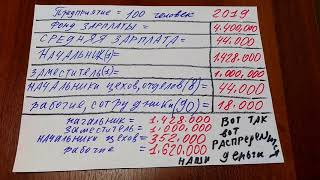 Предприятие = 100 человек 2019
Фонд зарплаты = 4.400,000
СРЕДНЯЯ ЗАРПЛАТА = 44.000
Начальник(1)= 1428.000
Заместитель(1)= 1.000,000
начальники цехов,отделов(8)= 44.000
рабочие,сотрудники(90)= 18.000
начальник = 1.428.000
заместитель = 1.000.000
начальники цехов=352.000
рабочие = 1,620.000
ВОТ ТАК
ВОТ
РАСПРЕДЕЛИЛИ
НАШИ деньги